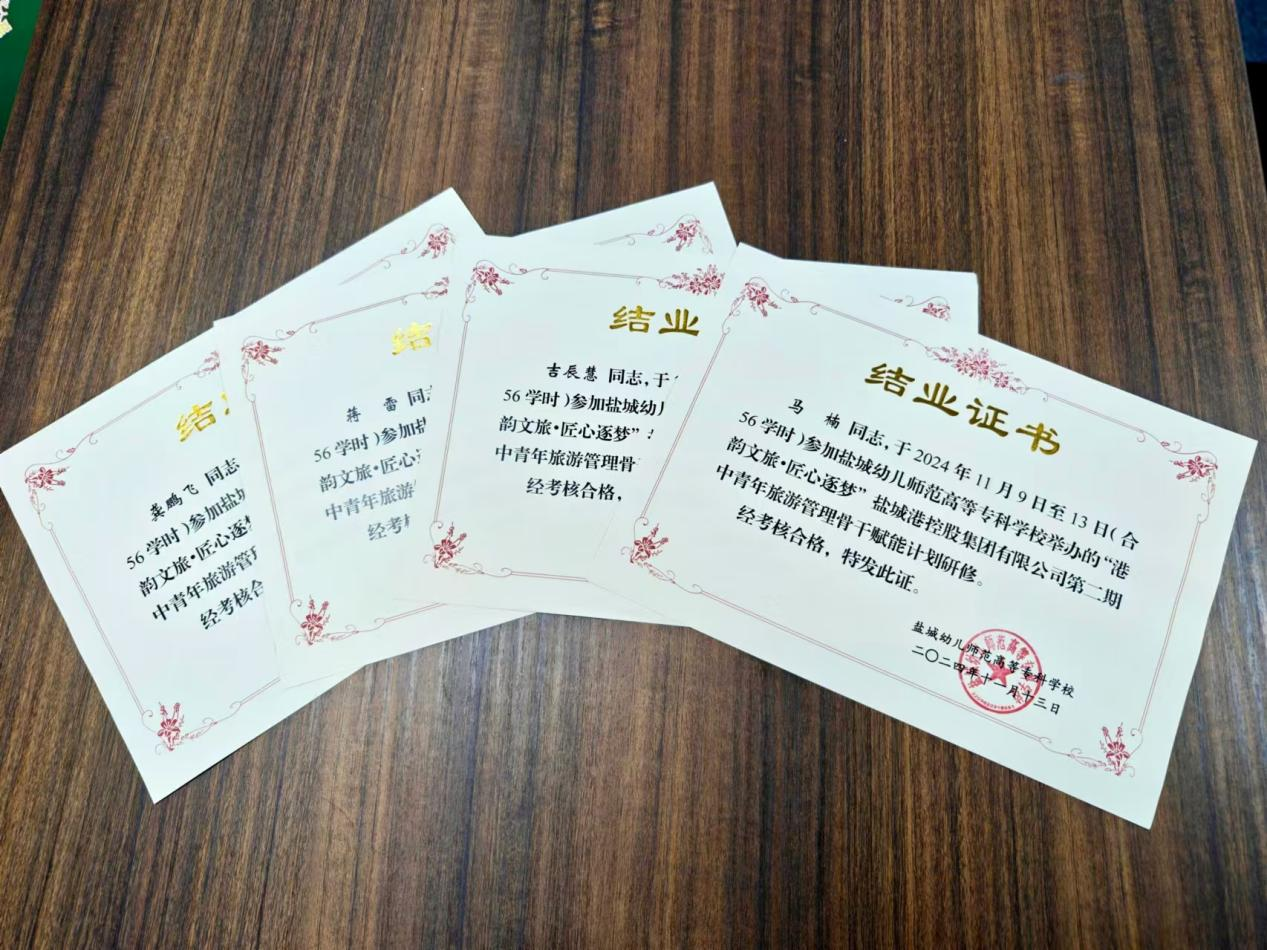 结
龚鹏飞 同志
56 学时）参加盐
韵文旅·匠心逐
中青年旅游管
经考核合
结
蒋 雷 同
56 学时）参加
韵文旅·匠心
中青年旅游
经考
结业
吉辰慧 同志，于
56 学时）参加盐城幼
韵文旅·匠心逐梦”
中青年旅游管理骨
经考核合格，
结业证书
马 楠 同志，于 2024 年 11 月 9 日至 13 日（合
56 学时）参加盐城幼儿师范高等专科学校举办的“港
韵文旅·匠心逐梦”盐城港控股集团有限公司第二期
中青年旅游管理骨干赋能计划研修。
经考核合格，特发此证。
盐城幼儿师范高等专科学校
二〇二四年十一月十三日